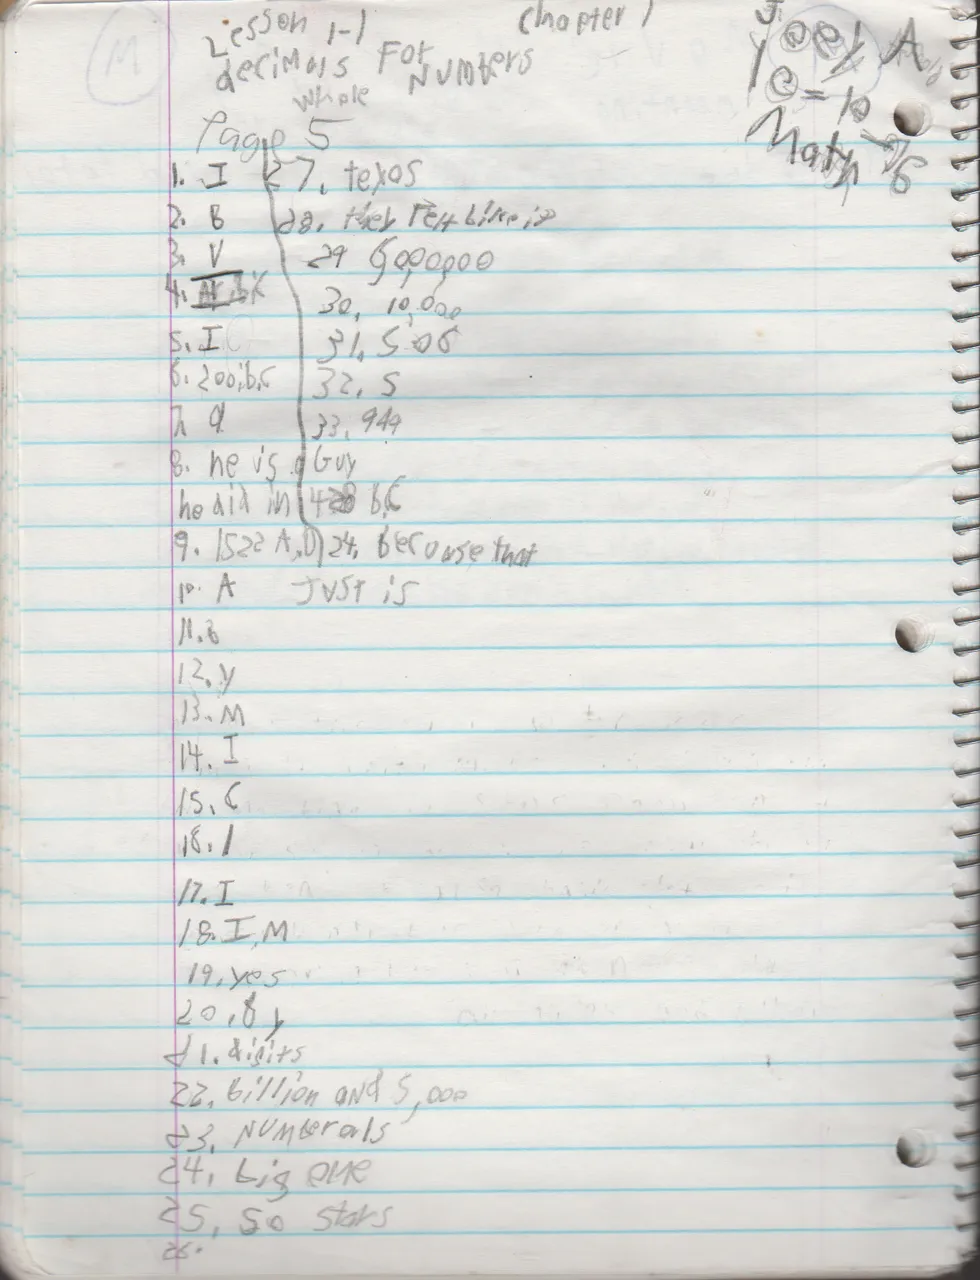 Lesson 1-1 Chapter 1
decimals For Numbers
Whole
Page 5
Joey A
10
Math
M
1. I
2. B
3. V
4.
5. I
6. 200,b,c
7. q
8. he is a Guy
he did in b,c
9. 1522 A,D
10. A
11. B
12. y
13. M
14. I
15. C
16. 1
17. I
18. I, M
19. yes
20, By
21. digits
22, billion and 5,000
23. Numberals
24, big one
25, 50 stars
26.
27, texas
28, they Felt Like it
29 5,000,000
30, 10,000
31, 5 06
32, 5
33, 949
24, because that
JUST is